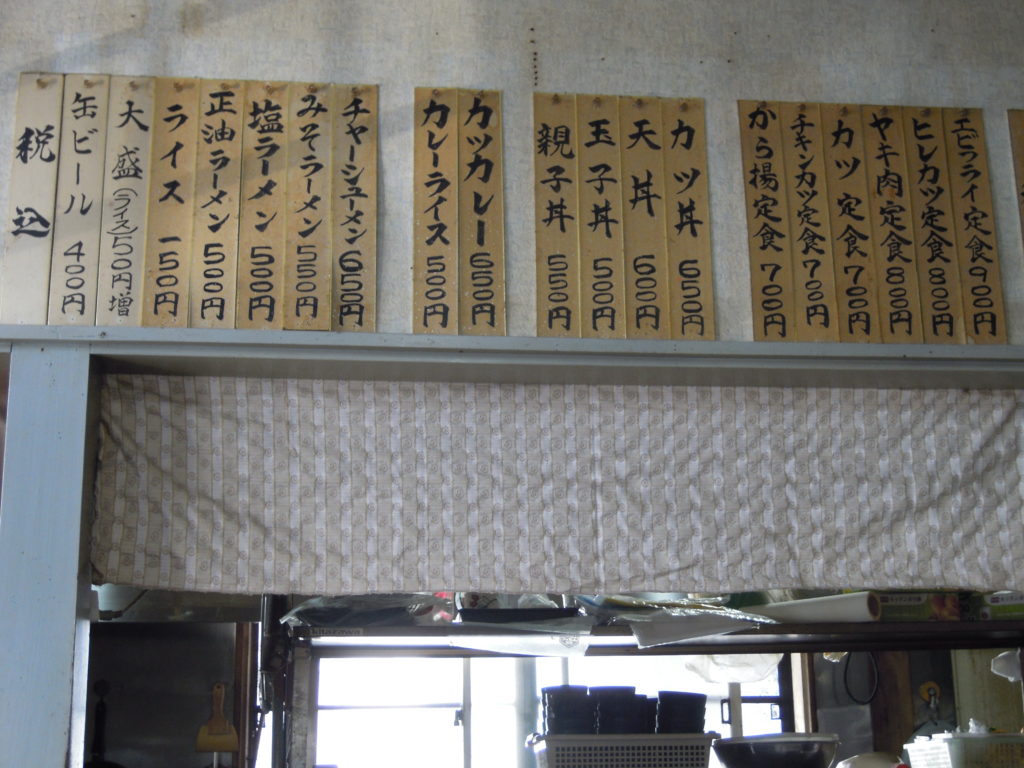 エビフライ定食 900円
ヒレカツ定食 800円
ヤキ肉定食 800円
カツ定食 700円
チキンカツ定食 700円
から揚定食 700円
カツ丼 650円
天丼 600円
玉子丼 500円
親子丼 550円
カツカレー 650円
カレーライス 500円
チャーシューメン 650円
みそラーメン 550円
塩ラーメン 500円
正油ラーメン 500円
ライス 150円
大盛(ライス)50円増
缶ビール 400円
税込